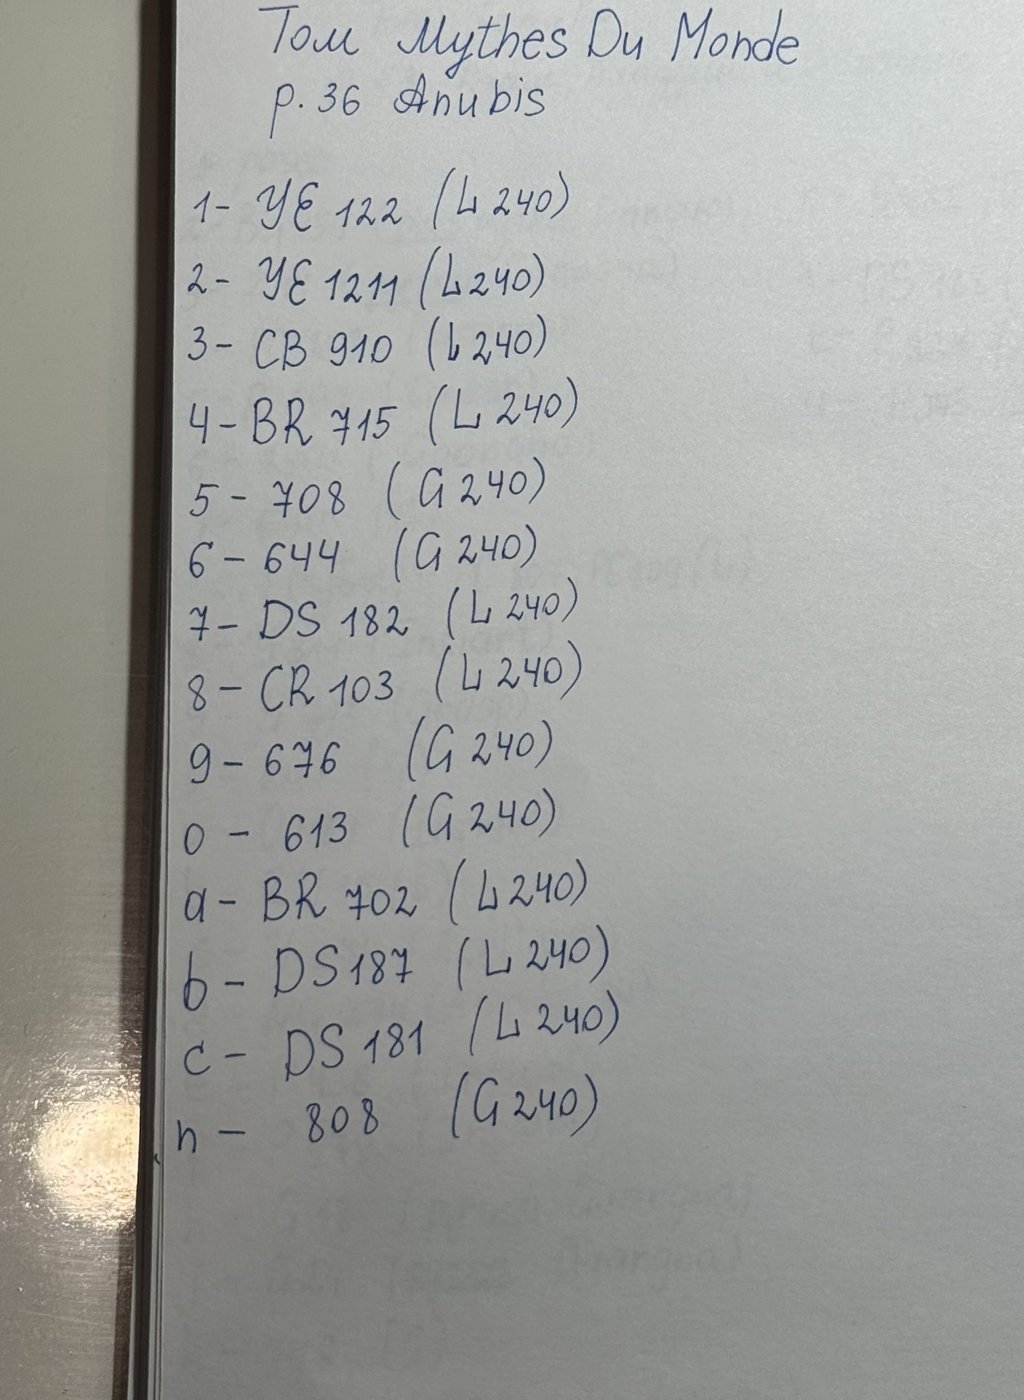 Том Mythes Du Monde
p. 36 Anubis
1- YE 122 (L 240)
2- YE 1211 (L 240)
3- CB 910 (L 240)
4- BR 715 (L 240)
5- 708 (G 240)
6- 644 (G 240)
7- DS 182 (L 240)
8- CR 103 (L 240)
9- 676 (G 240)
0- 613 (G 240)
a- BR 702 (L 240)
b- DS 187 (L 240)
c- DS 181 (L 240)
n- 808 (G 240)